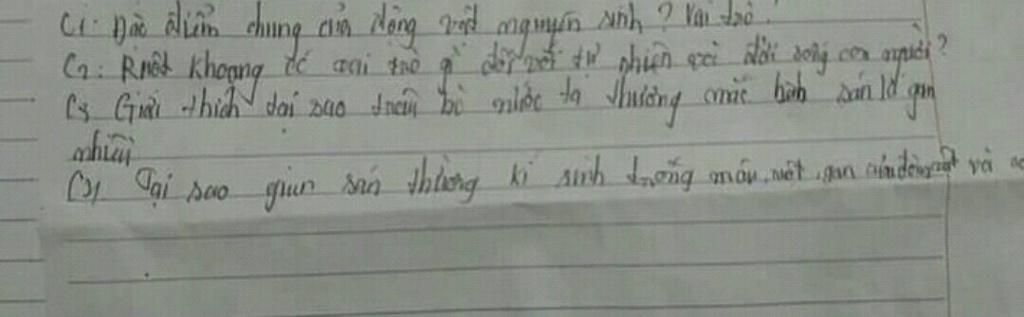 C1: Đặc điểm chung của động vật nguyên sinh? Vai trò.
C2: Ruột khoang có vai trò gì đối với tự nhiên và đời sống con người?
C3 Giải thích tại sao trâu bò nước ta thường mắc bệnh sán lá gan
nhiều
C4 Tại sao giun sán thường kí sinh trong máu, ruột, gan của động vật và